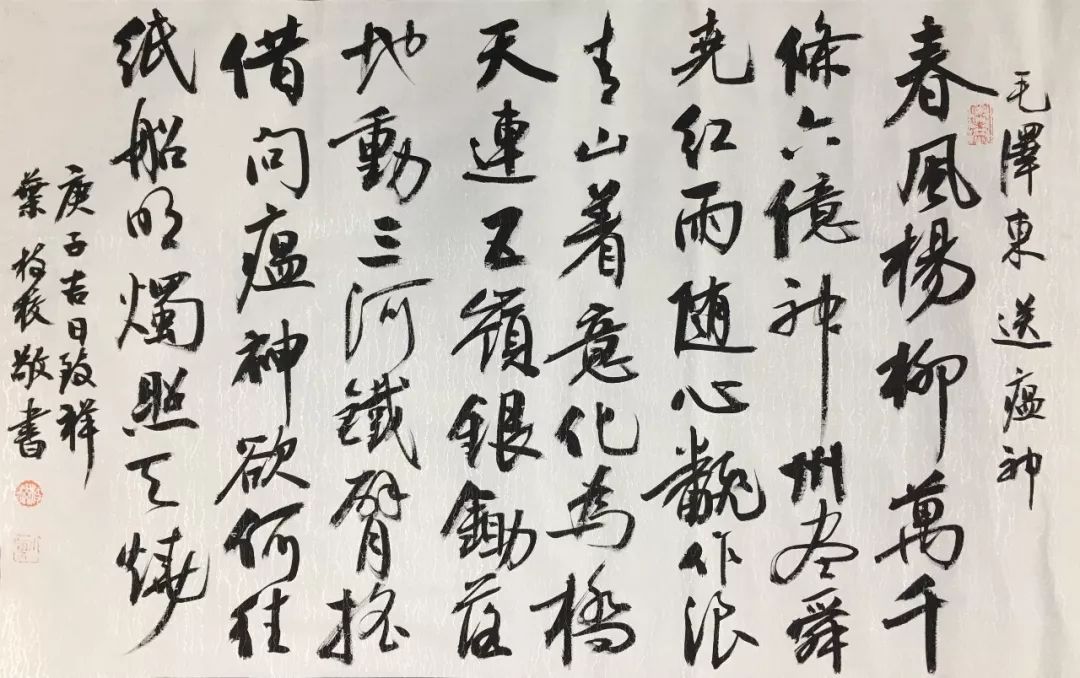 毛澤東送瘟神
春風楊柳萬千
條六億神州盡舜
堯紅雨随心飜作浪
青山着意化為橋
天連五嶺銀鋤落
地動三河鐵臂搖
借問瘟神欲何往
紙船明燭照天燒
庚子吉日致祥
葉敬書